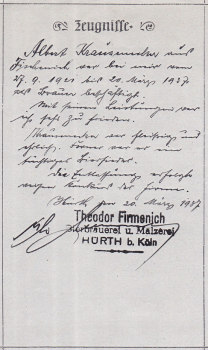 Zeugnisse
Albert Krausenecker aus
war bei mir vom
27. 9. 1921 bis 20. März 1927
als Brauer beschäftigt.
Mit seinen Leistungen war
ich sehr zufrieden.
war fleissig und
ehrlich. Ferner war er ein
tüchtiger
Die Entlassung erfolgte
wegen Konkurs der Firma.
Hürth den 20. März 1927
Theodor Firmenich
Bierbrauerei u. Mälzerei
HÜRTH b. Köln